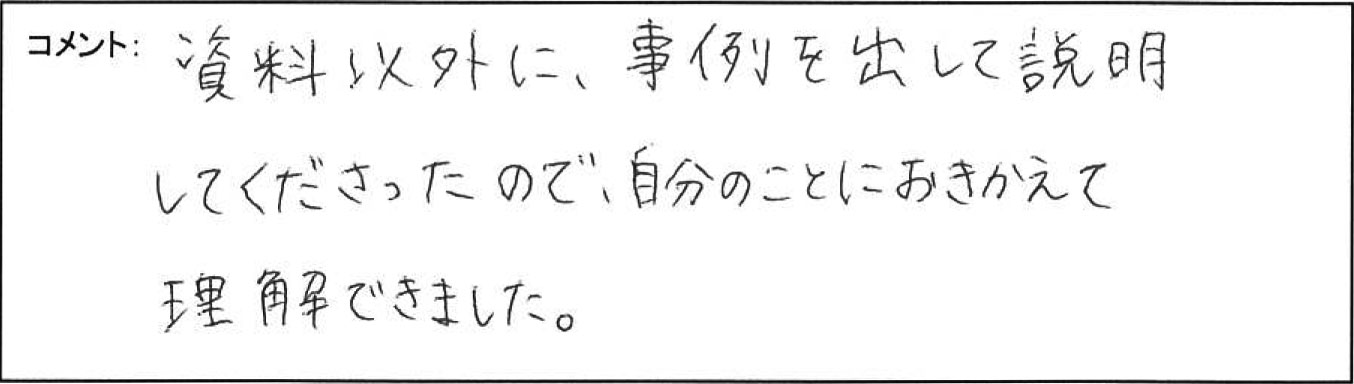 コメント: 資料以外に、事例を出して説明
してくださったので、自分のことにおきかえて
理解できました。